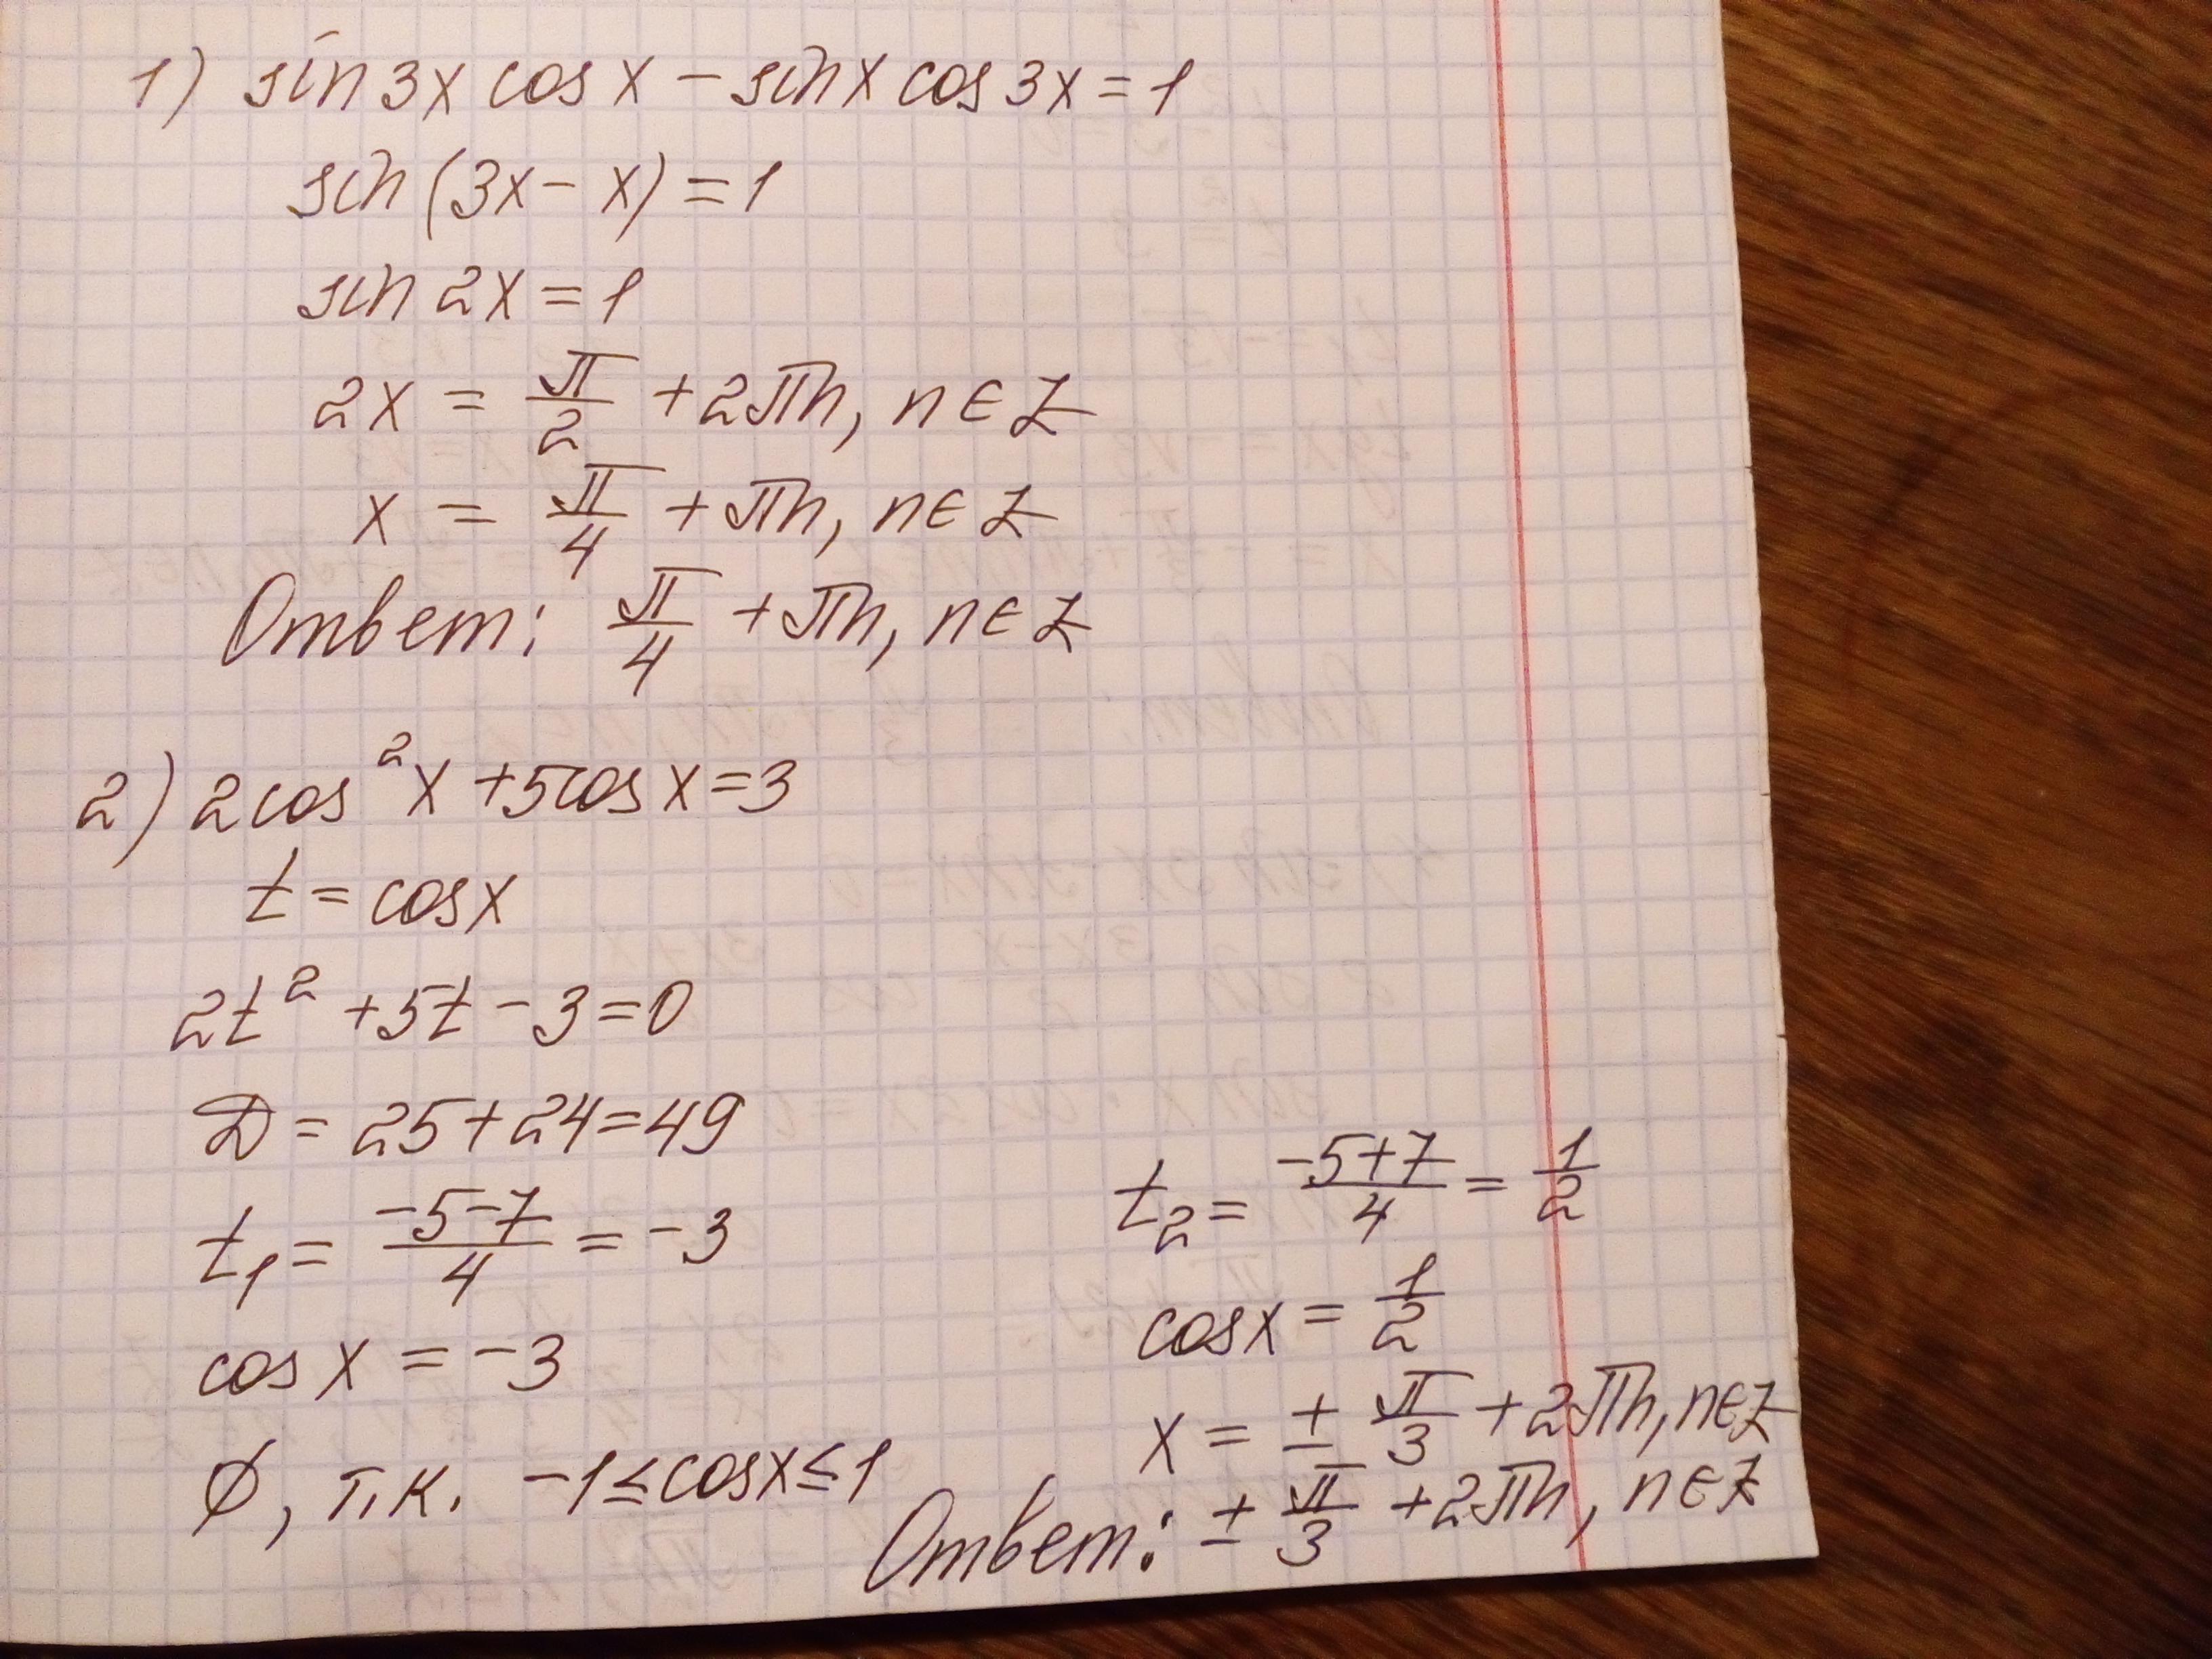 1) sin 3x cos x − sin x cos 3x = 1
sin (3x − x) = 1
sin 2x = 1
2x = π/2 + 2πn, n ∈ Z
x = π/4 + πn, n ∈ Z
Ответ: π/4 + πn, n ∈ Z
2) 2cos²x + 5cos x = 3
t = cos x
2t² + 5t − 3 = 0
D = 25 + 24 = 49
t₁ = (−5−7)/4 = −3
cos x = −3
∅, т.к. −1 ≤ cos x ≤ 1
t₂ = (−5+7)/4 = 1/2
cos x = 1/2
x = ± π/3 + 2πn, n ∈ Z
Ответ: ± π/3 + 2πn, n ∈ Z